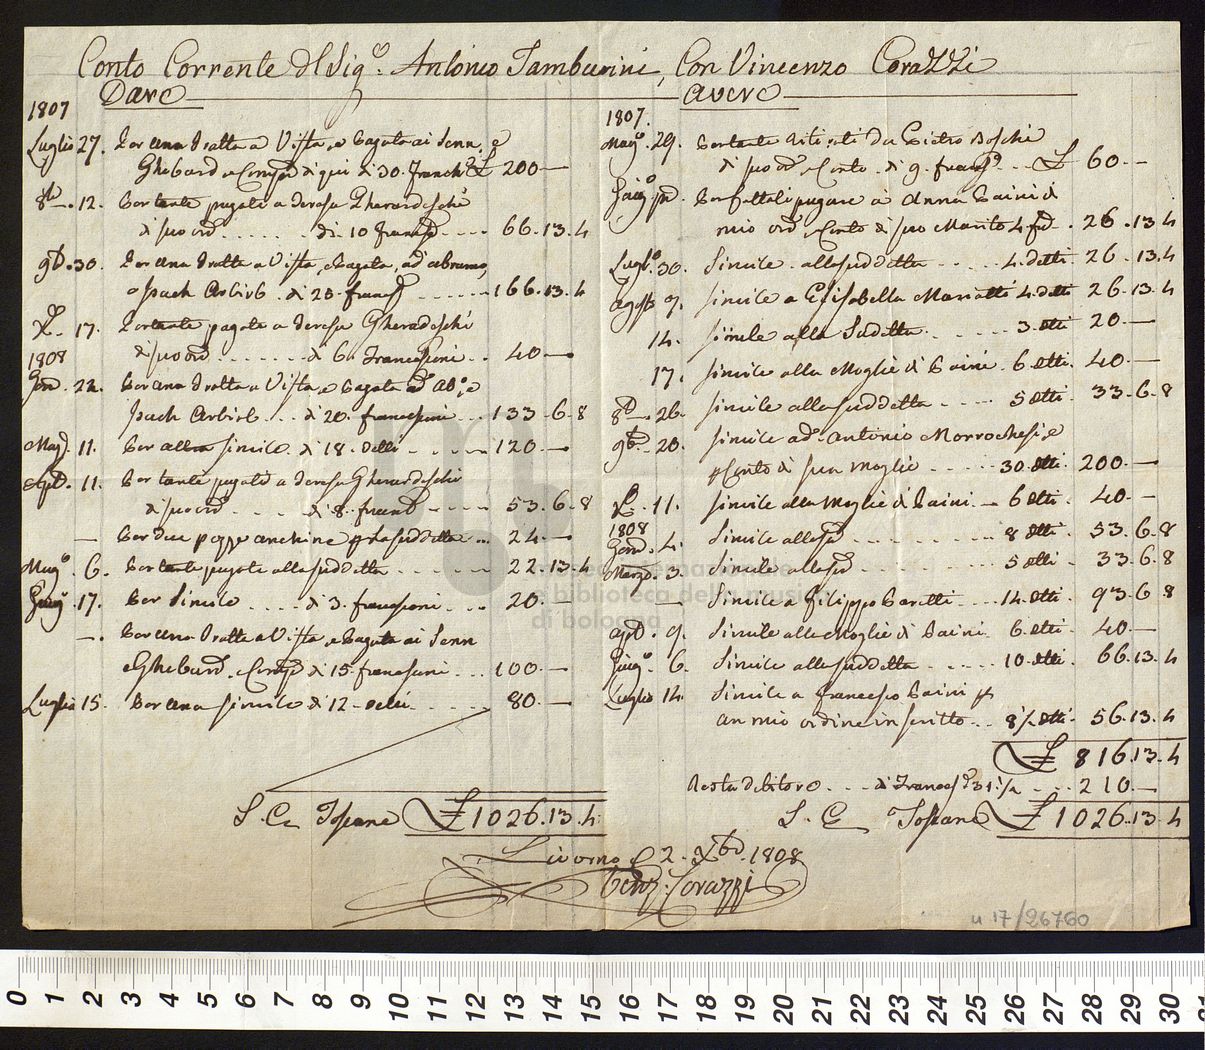 Conto Corrente del Sig.o Antonio Tamburini, Con Vincenzo Corazzi
Dare
1807
Luglio 27. Per una tratta a Vista, e Pagata ai Senn. e
Ghebard e Comp. di qui di 30 Franch. £ 200 —
8bre. 12. Contante pagati a Teresa Gherardeschi
di suo ord. . . . . di 10 Francesc. . . . 66.13.4
9b. 30. Per una tratta a Vista, e Pagata, ad Abramo,
e Isach Arbib. di 25. francesc. . . . . . 166.13.4
X. 17. Contante pagati a Teresa Gheradeschi
di suo ord. . . . . . di 6. Francesconi . . 40 —
1808
Genn. 22. Per una tratta a Vista, e Pagata ad Ab.o e
Isach Arbib . . di 20. francesconi . . . 133.6.8
Marz. 11. Per altra simile di 18. detti . . . . . 120 —
Apl. 11. Contante pagati a Teresa Gherardeschi
di suo ord. . . . . di 8. francesc. . . . . 53.6.8
— Per due pezze anchine per la suddetta . . . 24 —
Magg.o 6. Contante pagati alla suddetta . . . . . . 22.13.4
Giug.o 17. Per Simile . . . . di 3. francesconi . . . 20 —
—. Per una tratta a Vista, e Pagata ai Senn
e Ghebard. e Comp. di 15. francesconi . . . 100 —
Luglio 15. Per una simile di 12 — detti . . . . . 80 —
S. E. Toscane £ 1026.13.4
Avere
1807.
Mag.o 29. Contante ritirati da Pietro Boschi
di suo ord. e Conto. di 9. francesc. . . . £ 60 —
Giug.o pmo. Per fattoli pagare a Anna Paini di
mio ord. e Conto di suo Marito 4 fr. . 26.13.4
Lugl.o 30. Simile. alla suddetta . . . . . 4. detti 26.13.4
Agosto 9. simile a Elisabella Mariotti 4. detti 26.13.4
14. simile alla Sudetta . . . . . 3. detti 20 —
17. simile alla Moglie di Paini 6. detti. 40 —
8b. 26. simile alla suddetta . . . . . 5 detti. 33.6.8
9b. 20. simile ad Antonio Morrochesi, e
p Conto di sua Moglie . . . . . 30. detti. 200 —
X. 11. simile alla Moglie di Paini . — 6 detti. 40 —
1808
Genn. 4. Simile alla sud. . . . . . . . . . . 8 detti. 53.6.8
Marzo. 3. Simile alla sud. . . . . . . . . . 5 detti. 33.6.8
— Simile a Filippo Paretti . . . 14. detti. 93.6.8
Apl. 9. Simile alla Moglie di Paini. 6. detti. 40 —
Giug.o 6. Simile alla suddetta . . . . . . 10. detti. 66.13.4
Luglio 14. Simile a Francesco Paini p
un mio ordine in scritto . . 8 1/2 detti. 56.13.4
£ 816.13.4
Resta debitore . . . di Francesc. 31 1/2 . . . 210 —
S. E. Toscane £ 1026.13.4
Livorno p 2. Xbr. 1808
Venz. Corazzi
u 17/26760
museo internazionale
e biblioteca della musica
di bologna
0 1 2 3 4 5 6 7 8 9 10 11 12 13 14 15 16 17 18 19 20 21 22 23 24 25 26 27 28 29 30 31